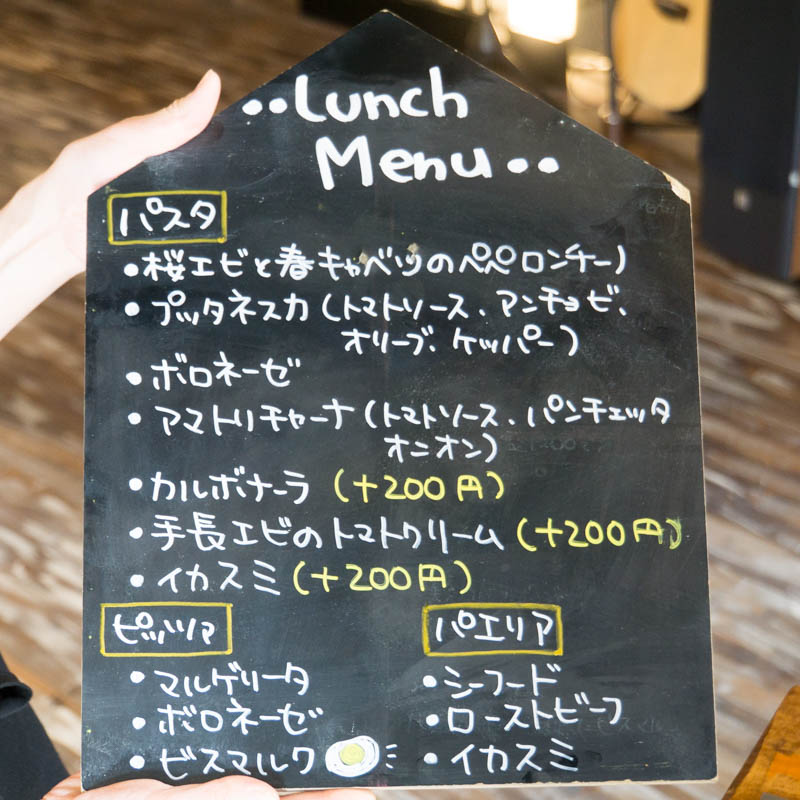 ••Lunch
Menu••
パスタ
•桜エビと春キャベツのペペロンチーノ
•プッタネスカ(トマトソース、アンチョビ、
オリーブ、ケッパー)
•ボロネーゼ
•アマトリチャーナ(トマトソース、パンチェッタ
オニオン)
•カルボナーラ(+200円)
•手長エビのトマトクリーム(+200円)
•イカスミ(+200円)
ピッツァ
•マルゲリータ
•ボロネーゼ
•ビスマルク
パエリア
•シーフード
•ローストビーフ
•イカスミ